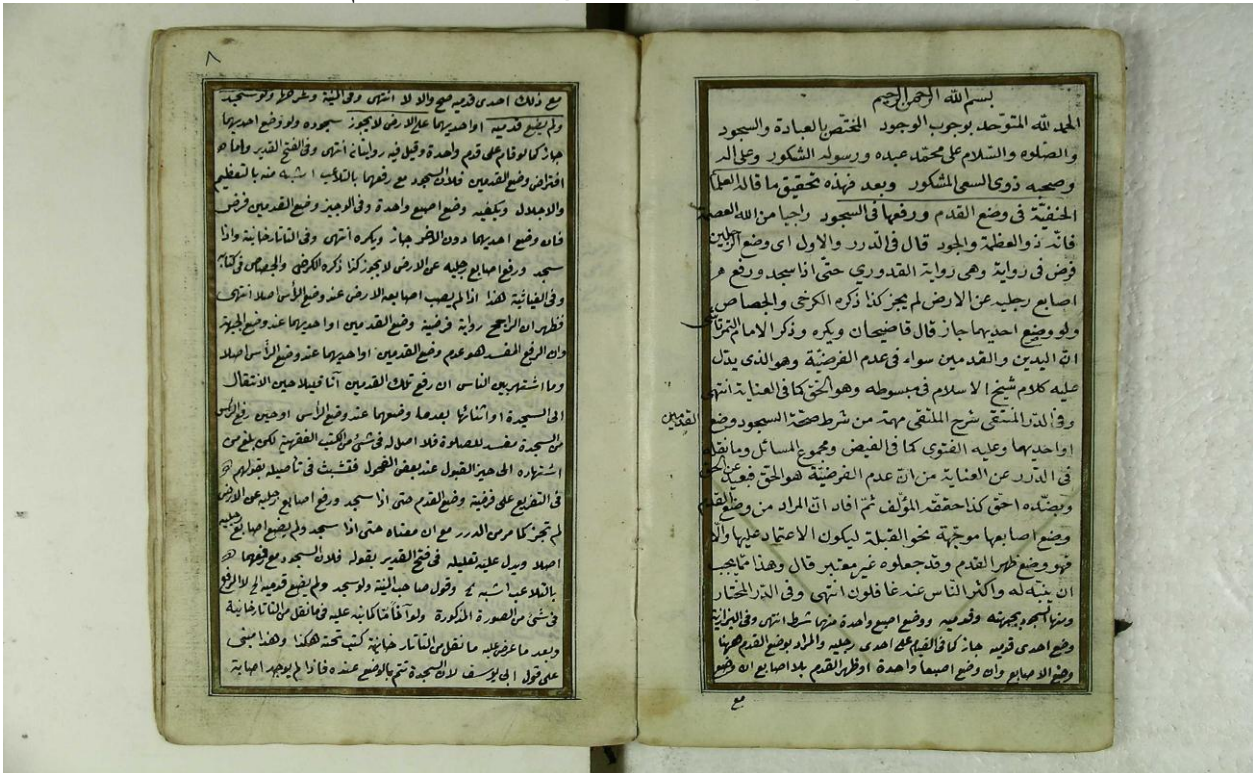 بسم الله الرحمن الرحيم
الحمد لله المتوحد بوجوب الوجود المختص بالعبادة والسجود
والصلوه والسلام على محمد عبده ورسوله الشكور وعلى اله
وصحبه ذوى السعى المشكور وبعد فهذه تحقيق ما قاله العلما
الحنفية فى وضع القدم ورفعها فى السجود راجيا من الله العصمة
فانه ذو العظمة والجود قال فى الدرر والاول اى وضع الرجلين
فرض فى رواية وهى رواية القدوري حتى اذا سجد ورفع
اصابع رجليه عن الارض لم يجز كذا ذكره الكرخى والجصاص
ولو وضع احديهما جاز قال قاضيحان ويكره وذكر الامام التمرتاشى
ان اليدين والقدمين سواء فى عدم الفرضية وهو الذى يدل
عليه كلام شيخ الاسلام فى مبسوطه وهو الحق كما فى العناية انتهى
وفى الدر المنتقى شرح الملتقى مهمة من شرط صحة السجود وضع القدمين
او احديهما وعليه الفتوى كما فى الفيض ومجموع المسائل وما نقله
فى الدرر عن العناية من ان عدم الفرضية هو الحق فبعيد عن الحق
وبضده احق كذا حققه المؤلف ثم افاد ان المراد من وضع القدم
وضع اصابعها موجهة نحو القبلة ليكون الاعتماد عليها والا
فهو وضع ظهر القدم وقد جعلوه غير معتبر قال وهذا مما يجب
ان ينبه له واكثر الناس عنه غافلون انتهى وفى الدر المختار
ومنها السجود بجبهته وقدميه ووضع اصبع واحدة منها شرط انتهى وفى البزازية
وضع احدى قدميه جاز كما فى القيام على احدى رجليه والمراد بوضع القدم ههنا
وضع الاصابع وان وضع اصبعا واحدة او ظهر القدم بلا اصابع ان وضع
مع
٨
مع ذلك احدى قدميه صح والا لا انتهى وفى المنية وشرحها ولو سجد
ولم يضع قدميه او احديهما على الارض لا يجوز سجوده ولو وضع احديهما
جاز كما لو قام على قدم واحدة وقيل فيه روايتان انتهى وفى الفتح القدير واما
افتراض وضع القدمين فلان السجود مع رفعهما بالتلاعب اشبه منه بالتعظيم
والاجلال ويكفيه وضع اصبع واحدة وفى الوجيز وضع القدمين فرض
فان وضع احديهما دون الاخر جاز ويكره انتهى وفى التاتارخانية واذا
سجد ورفع اصابع رجليه عن الارض لا يجوز كذا ذكره الكرخى والجصاص فى كتابه
وفى الغياثية هذا اذا لم يصب اصابعه الارض عند وضع الرأس اصلا انتهى
فظهر ان الراجح رواية فرضية وضع القدمين او احديهما عند وضع الجبهة
وان الرفع المفسد هو عدم وضع القدمين او احديهما عند وضع الرأس اصلا
وما اشتهر بين الناس ان رفع تلك القدمين آنا قبيلا حين الانتقال
الى السجدة او اثنائها بعدما وضعهما عند وضع الرأس او حين رفع الرأس
من السجدة مفسد للصلوة فلا اصل له فى شئ من الكتب الفقهية لكن بلغ من
اشتهاره الى حيز القبول عند بعض الفحول فتشبث فى تأصيله بقولهم
فى التفريع على فرضية وضع القدم حتى اذا سجد ورفع اصابع رجليه عن الارض
لم تجز كما مر من الدرر مع ان معناه حتى اذا سجد ولم يضع اصابع رجليه
اصلا ويدل عليه تعليله فى فتح القدير بقوله فلان السجود مع رفعهما
بالتلاعب اشبه وقول صاحب المنية ولو سجد ولم يضع قدميه الى لا الرفع
فى شئ من الصورة المذكورة
وبعد ما عرض عليه ما نقل من التاتارخانية كتب تحته هكذا وهذا مبنى
على قول ابى يوسف لان السجدة تتم بالوضع عنده فاذا لم يوجد اصابة